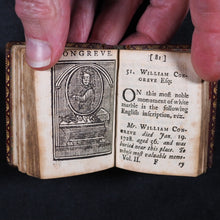 CONGREVE.
[ 81 ]
51. WILLIAM CON-
GREVE Esq;
ON this most noble
monument of white
marble is the following
English inscription, viz.
Mr. WILLIAM CON-
GREVE died Jan. 19,
1728. aged 56. and was
buried near this place. To
whose most valuable memo-
Vol. II. F ry